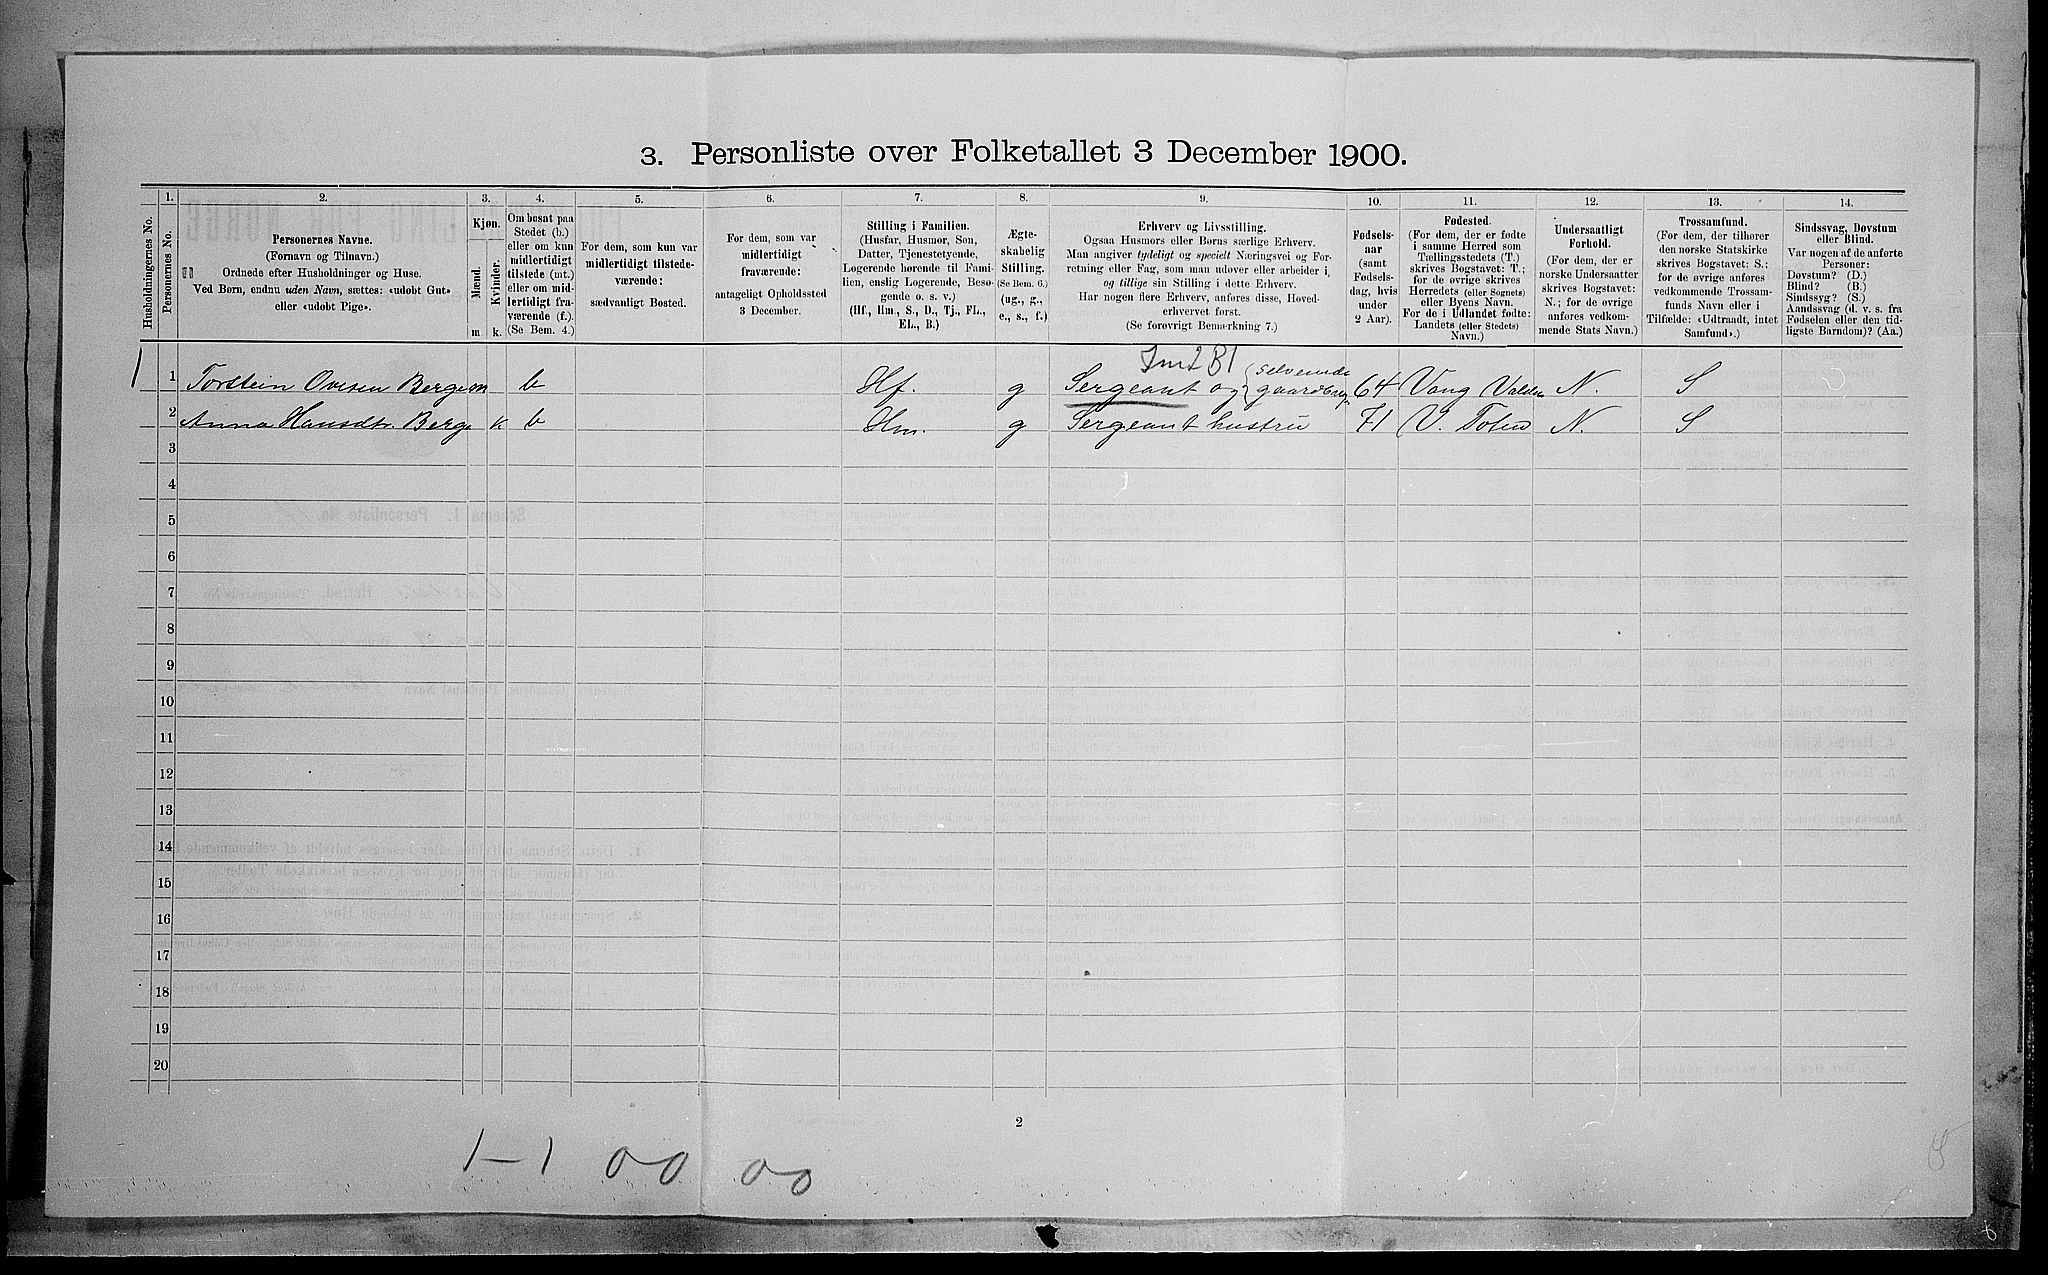 3. Personliste over Folketallet 3 December 1900.
Husholdningernes No.
1.
Personernes No.
2.
Personernes Navne.
(Fornavn og Tilnavn.)
Ordnede efter Husholdninger og Huse.
Ved Børn, endnu uden Navn, sættes: «udøbt Gut»
eller «udøbt Pige».
3.
Kjøn.
Mænd.
Kvinder.
m.
k.
4.
Om bosat paa
Stedet (b.)
eller om kun
midlertidigt
tilstede (mt.)
eller om mid-
lertidigt fra-
værende (f.).
(Se Bem. 4.)
5.
For dem, som kun var
midlertidigt tilstede-
værende:
sædvanligt Bosted.
6.
For dem, som var
midlertidigt
fraværende:
antageligt Opholdssted
3 December.
7.
Stilling i Familien.
(Husfar, Husmor, Søn,
Datter, Tjenestetyende,
Logerende hørende til Fami-
lien, enslig Logerende, Besø-
gende o. s. v.)
(Hf., Hm., S., D., Tj., FL.,
EL., B.)
8.
Ægte-
skabelig
Stilling.
(Se Bem. 6.)
(ug., g.,
e., s., f.)
9.
Erhverv og Livsstilling.
Ogsaa Husmors eller Børns særlige Erhverv.
Man angiver tydeligt og specielt Næringsvei og For-
retning eller Fag, som man udøver eller arbeider i,
og tillige sin Stilling i dette Erhverv.
Har nogen flere Erhverv, anføres disse, Hoved-
erhvervet først.
(Se forøvrigt Bemærkning 7.)
10.
Fødsels-
aar
(samt
Fødsels-
dag, hvis
under
2 Aar).
11.
Fødested.
(For dem, der er fødte
i samme Herred som
Tællingsstedets (T.)
skrives Bogstavet: T.;
for de øvrige skrives
Herredets (eller Sognets)
eller Byens Navn.
For de i Udlandet fødte:
Landets (eller Stedets)
Navn.)
12.
Undersaatligt
Forhold.
(For dem, der er
norske Undersaatter
skrives Bogstavet:
N.; for de øvrige
anføres vedkom-
mende Stats Navn.)
13.
Trossamfund.
(For dem, der tilhører
den norske Statskirke
skrives Bogstavet: S.;
for de øvrige anføres
vedkommende Trossam-
funds Navn eller i
Tilfælde: «Udtraadt, intet
Samfund».)
14.
Sindssvag, Døvstum
eller Blind.
Var nogen af de anførte
Personer:
Døvstum? (D.)
Blind? (B.)
Sindssyg? (S.)
Aandssvag (d. v. s. fra
Fødselen eller den tid-
ligste Barndom)? (Aa.)
1 1 Torstein Ovesen Berge m b Hf. g Sergeant og selveiende gaardbrug. 64 Vang Valders N. S
2 Anna Hansdtr. Berge k b Hm. g Sergeant hustru 71 V. Toten N. S
3
4
5
6
7
8
9
10
11
12
13
14
15
16
17
18
19
20
2
1-1 00 00